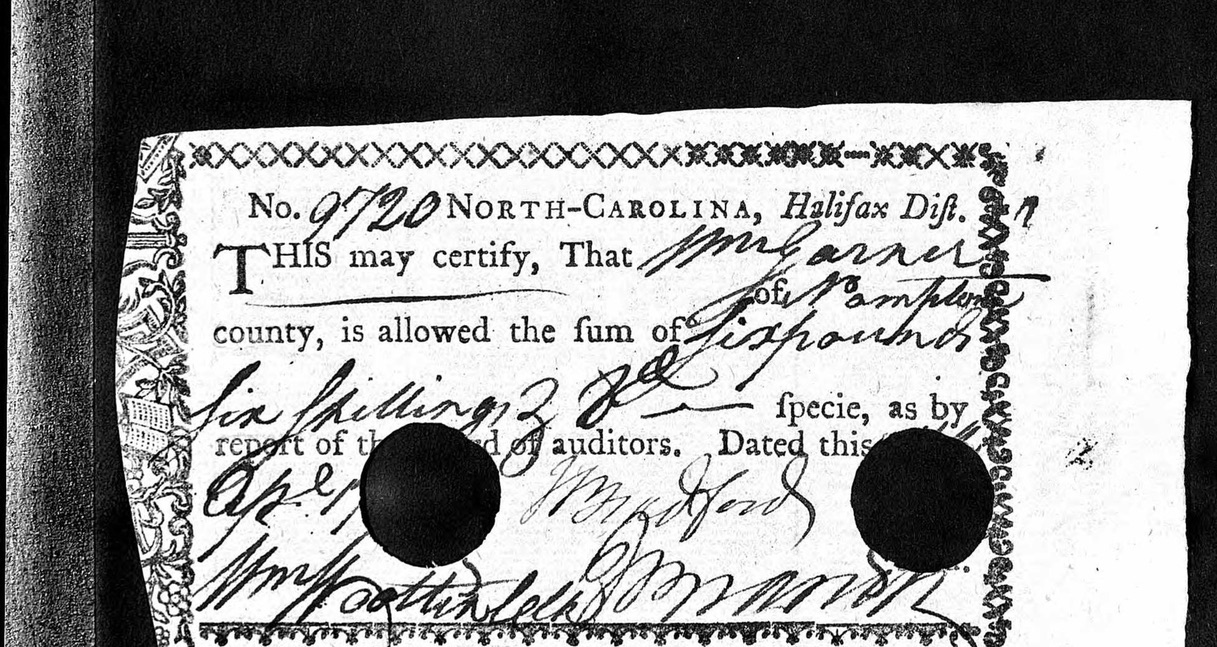 No. 9720 NORTH-CAROLINA, Halifax Diſt.
THIS may certify, That Wm Garner
of N°ampton
county, is allowed the ſum of Six pounds
Six Shillings & 8d ſpecie, as by
report of auditors. Dated this
Apl
J Bradford
Wm Wootten Clk J Branch